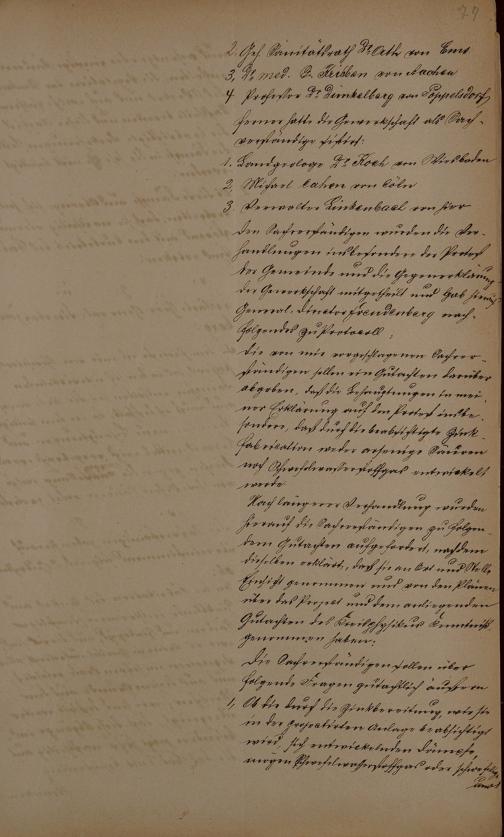 79
2. Geh. Sanitätsrath Dr Orth von Ems
3, Dr med. G. Kribben von Aachen
4 Professor Dr Dünkelberg von Poppelsdorf,
ferner hatte die Gewerkschaft als Sach-
verständige sistirt:
1. Landgeologe Dr Koch von Wiesbaden
2, Michael Cahen von Cöln
3 Verwalter Linkenbach von hier
Den Sachverständigen wurden die Ver-
handlungen insbesondere der Protest
der Gemeinde und die Gegenerklärung
der Gewerkschaft mitgetheilt und gab hierauf
General-Director Freudenberg nach-
folgendes zu Protocoll:
Die von mir vorgeschlagenen Sachver-
ständigen sollen ein Gutachten darüber
abgeben, daß die Behauptungen in mei-
ner Erklärung auf den Protest insbe-
sondere, daß durch die beabsichtigte Zink-
fabrikation weder arsenige Säuren
noch Schwefelwasserstoffgas entwickelt
werde
Nach längerer Verhandlung wurden
hierauf die Sachverständigen zu folgen-
dem Gutachten aufgefordert, nachdem
dieselben erklärt, daß sie an Ort und Stelle
Einsicht genommen und von den Plänen
über das Project und dem anliegenden
Gutachten des Kreisphysikus Kenntniß
genommen haben.
Die Sachverständigen sollen über
folgende Fragen gutachtlich äußern
1, Ob die durch die Zinkbereitung, wie sie
in der projectirten Anlage beabsichtigt
wird, sich entwickelnden Dämpfe,
mögen Schwefelwasserstoffgas oder schweflige